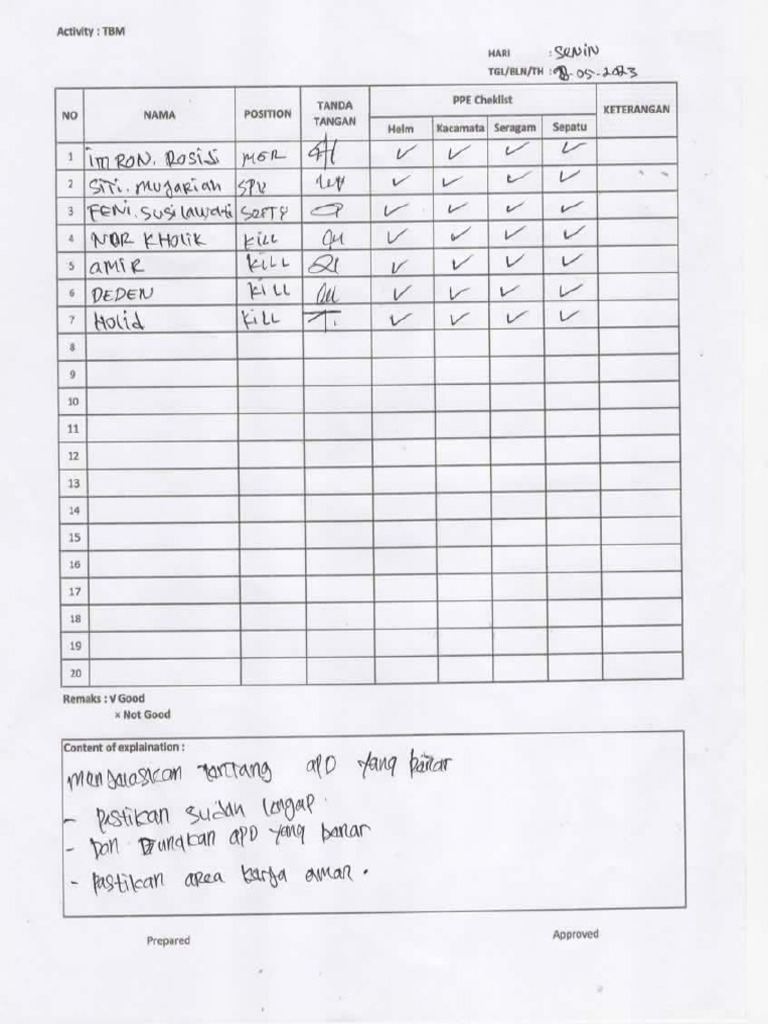 Activity : TBM
HARI : SENIN
TGL/BLN/TH : 8-05-2023
NO NAMA POSITION TANDA TANGAN PPE Cheklist KETERANGAN
Helm Kacamata Seragam Sepatu
1 IMRON. ROSISI MGR ✓ ✓ ✓ ✓
2 SITI. MUJARIAH SPV ✓ ✓ ✓ ✓
3 FENI. SUSILAWATI ✓ ✓ ✓ ✓
4 NUR KHOLIK KILL ✓ ✓ ✓ ✓
5 AMIR KILL ✓ ✓ ✓ ✓
6 DEDEN KILL ✓ ✓ ✓ ✓
7 HOLID KILL ✓ ✓ ✓ ✓
8
9
10
11
12
13
14
15
16
17
18
19
20
Remaks : V Good
× Not Good
Content of explaination :
menjalaskan tantang APD yang banar
- pastikan sudah lengap.
- Dan gunakan APD yang banar
- pastikan area karja aman.
Prepared Approved